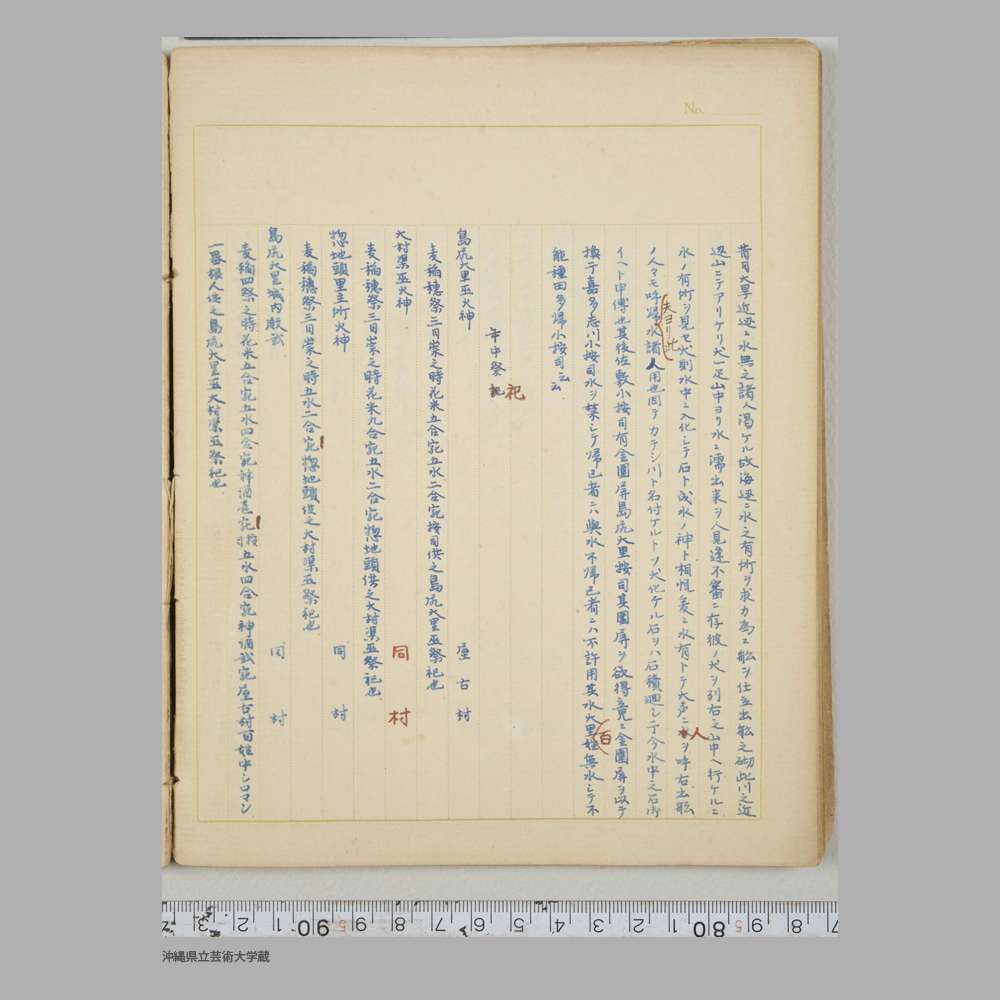 No.
昔日大旱近辺ニ水無之諸人渇ケル故海辺ニ水之有所ヲ求ル為ニ船ヲ仕立出船之砌此川之近
辺山ニテアリケリ犬一疋山中ヨリ水ニ濡出来ヲ人見逢不審ニ存彼ノ犬ヲ列右之山中ヘ行ケルニ
水ノ有所ヲ見セ犬則水中ニ入化シテ石ト成水ノ神ト相悦爰ニ水有トテ大声ニ人ヲ呼右出船
ノ人々モ呼帰夫ヨリ此水諸人用也因テカデシ川ト名付ケルトソ犬化ケル石ヲハ石積廻シ于今水中之石御
イヘト申傳也其後佐敷小按司有金圍屏島尻大里按司其圍屏ヲ欲得竟ニ金圍屏ヲ以テ
換于嘉多志川小按司水ヲ禁シテ帰已者ニハ與水不帰已者ニハ不許用其水大里百姓無水シテ不
能種田多帰小按司云云
年中祭祀
島尻大里巫火神 屋古村
麦稲穂祭三日崇之時花米五合宛五水二合宛按司供之島尻大里巫祭祀也
大村渠巫火神 同村
麦稲穂祭三日崇之時花米九合宛五水二合宛惣地頭供之大村渠巫祭祀也
惣地頭里主所火神 同村
麦稲穂祭三日崇之時五水二合宛惣地頭供之大村渠巫祭祀也
島尻大里城内殿 同村
麦稲四祭之時花米五合宛五水四合宛神酒壱宛按司五水四合宛神酒弐宛屋古村百姓中シロマシ
一器根人供之島尻大里巫大村渠巫祭祀也
沖縄県立芸術大学蔵